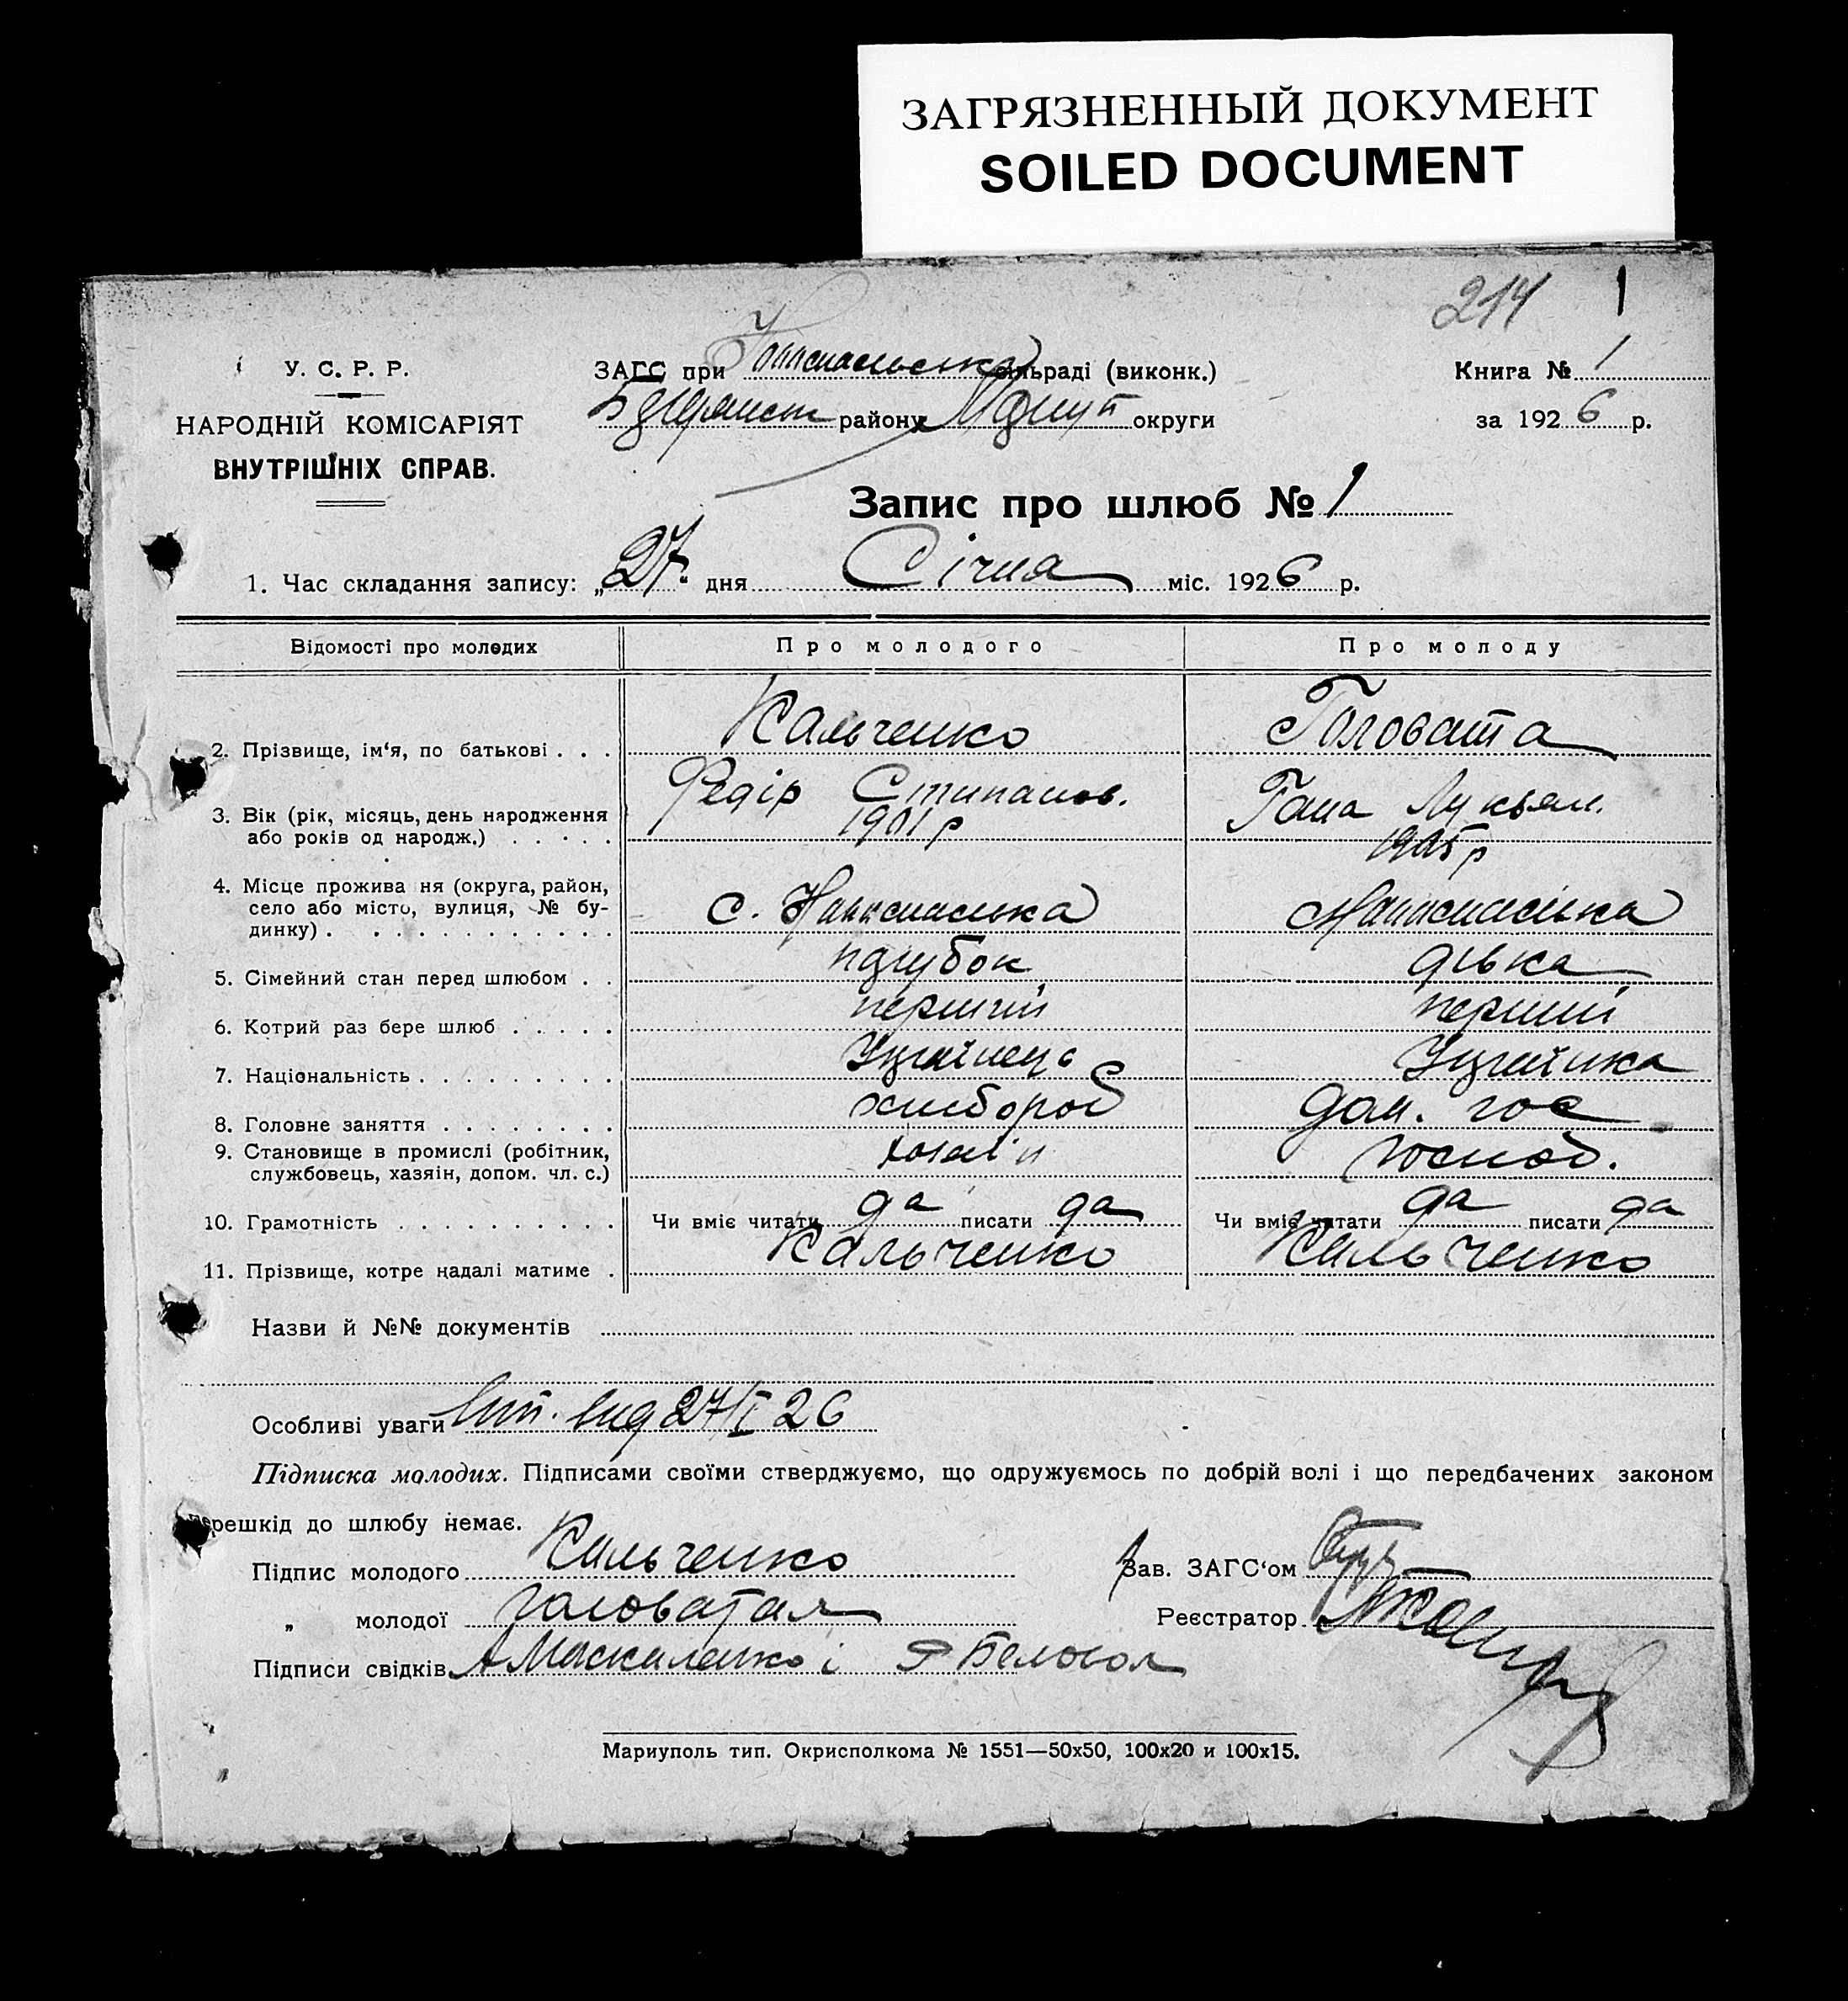 ЗАГРЯЗНЕННЫЙ ДОКУМЕНТ
SOILED DOCUMENT
214 1
У. С. Р. Р.
НАРОДНІЙ КОМІСАРІЯТ
ВНУТРІШНІХ СПРАВ.
ЗАГС при сільраді (виконк.)
району Мариуп округи
Книга № 1
за 1926 р.
Запис про шлюб № 1
1. Час складання запису: „27 дня Січня міс. 1926 р.
Відомості про молодих Про молодого Про молоду
2. Прізвище, ім'я, по батькові . . . Кальченко Головата
Федір Стипанов. Гана Лукьян.
3. Вік (рік, місяць, день народження 1901 р 1905 р
або років од народж.) . . . . .
4. Місце прожива ня (округа, район,
село або місто, вулиця, № бу- с.
динку) . . . . . . . . . . . .
5. Сімейний стан перед шлюбом . . парубок дівка
6. Котрий раз бере шлюб . . . . . перший перший
7. Національність . . . . . . . . . Українець Українка
8. Головне заняття . . . . . . . . хлибороб дом. гос
9. Становище в промислі (робітник, хазяін господ.
службовець, хазяін, допом. чл. с.)
10. Грамотність . . . . . . . . . . Чи вміє читати да писати да Чи вміє читати да писати да
11. Прізвище, котре надалі матиме . Кальченко Кальченко
Назви й №№ документів
Особливі уваги 27/I 26
Підписка молодих. Підписами своїми стверджуємо, що одружуємось по добрій волі і що передбачених законом
перешкід до шлюбу немає.
Підпис молодого Кальченко Зав. ЗАГС'ом
„ молодої Головатая Реєстратор
Підписи свідків А Москаленко і Я Беловол
Мариуполь тип. Окрисполкома № 1551—50х50, 100х20 и 100х15.